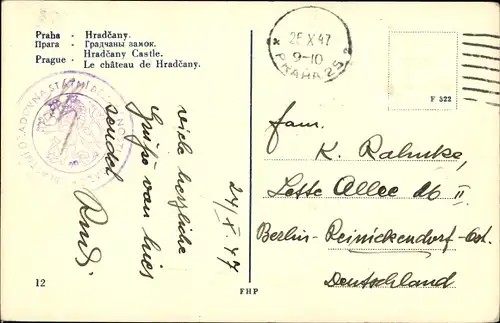 Praha - Hradčany.
Прага - Градчаны замок.
Hradčany Castle.
Prague - Le château de Hradčany.
26 X 47
9-10
* PRAHA 25
F 322
24/X. 47
viele herzliche
Grüße von hier
sendet
Rudi
Fam.
K. Rahnke,
Lette Allee 26 II
Berlin-Reinickendorf-Ost.
Deutschland
12
FHP